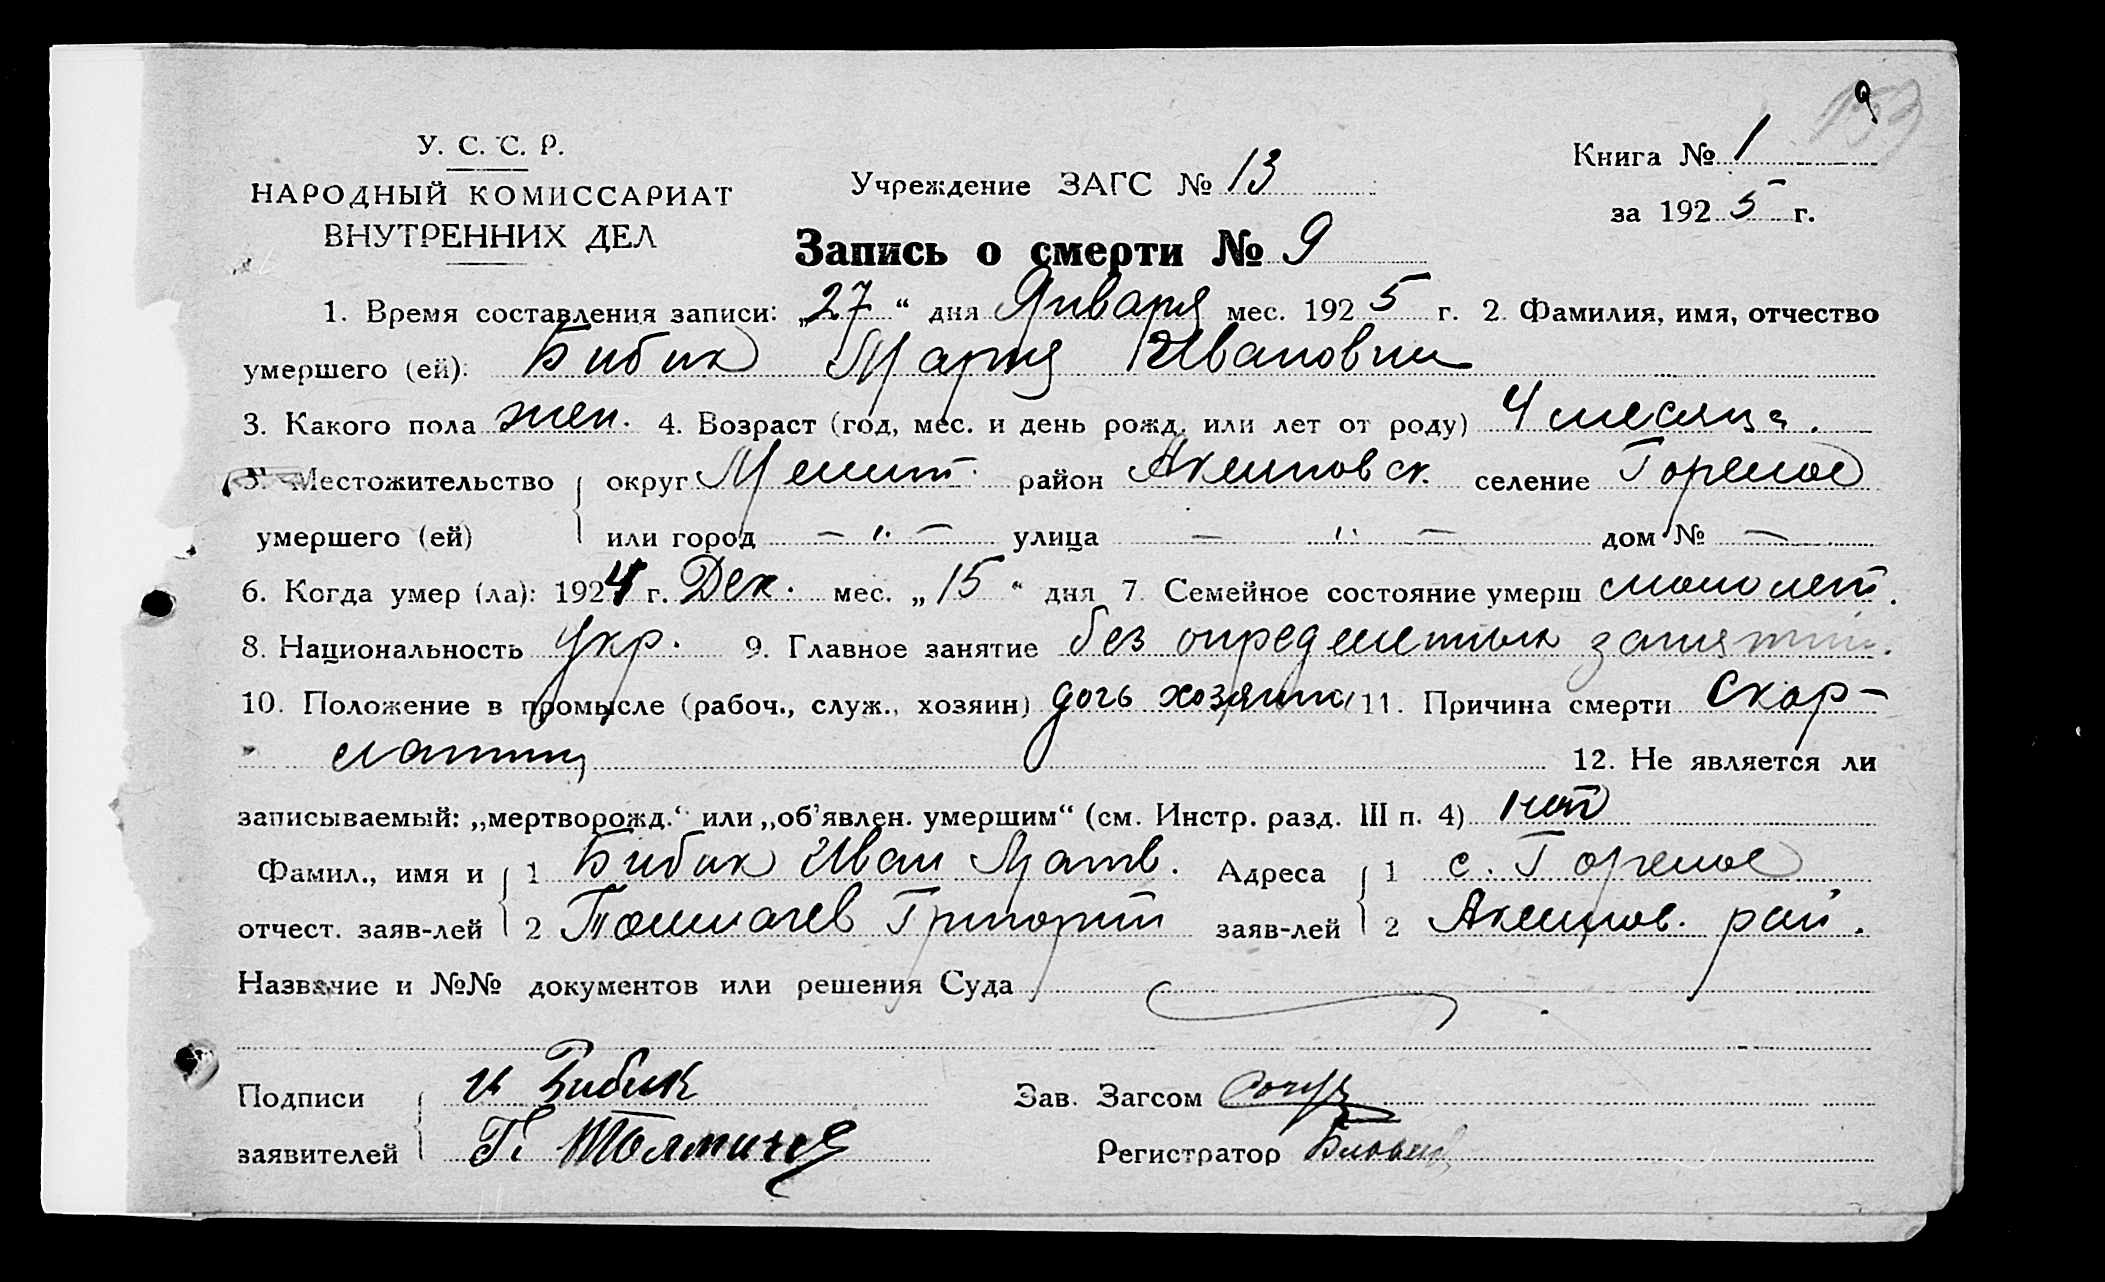 9
153
У. С. С. Р.
НАРОДНЫЙ КОМИССАРИАТ
ВНУТРЕННИХ ДЕЛ
Учреждение ЗАГС № 13
Книга № 1
за 1925 г.
Запись о смерти № 9
1. Время составления записи: „27“ дня Января мес. 1925 г. 2. Фамилия, имя, отчество
умершего (ей): Бибик Мария Ивановна
3. Какого пола жен. 4. Возраст (год, мес. и день рожд. или лет от роду) 4 месяца.
5. Местожительство округ Мелит. район Акимовск. селение Горелое
умершего (ей) или город — " — улица — " — дом № —
6. Когда умер (ла): 1924 г. Дек. мес. „15“ дня 7. Семейное состояние умерш малолет.
8. Национальность Укр. 9. Главное занятие без определенных занятий.
10. Положение в промысле (рабоч., служ., хозяин) дочь хозяина 11. Причина смерти Скар-
латина
12. Не является ли
записываемый: „мертворожд.“ или „об’явлен. умершим“ (см. Инстр. разд. III п. 4) нет
Фамил., имя и 1 Бибик Иван Матв. Адреса 1 с. Горелое
отчест. заяв-лей 2 Толмачев Григорий заяв-лей 2 Акимов. рай.
Название и №№ документов или решения Суда
Подписи И Бибик Зав. Загсом
заявителей Г. Регистратор